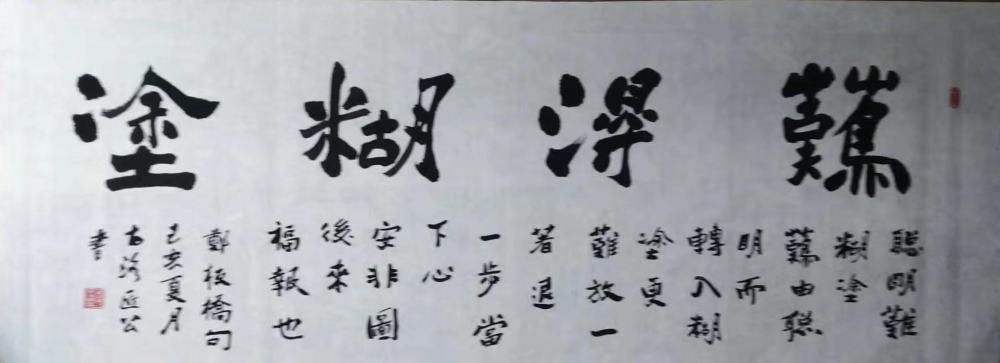 難得糊塗
聰明難
糊塗
難由聰
明而
轉入糊
塗更
難放一
著退
一步當
下心
安非圖
後來
福報也
鄭板橋句
己亥夏月
古洛公
書